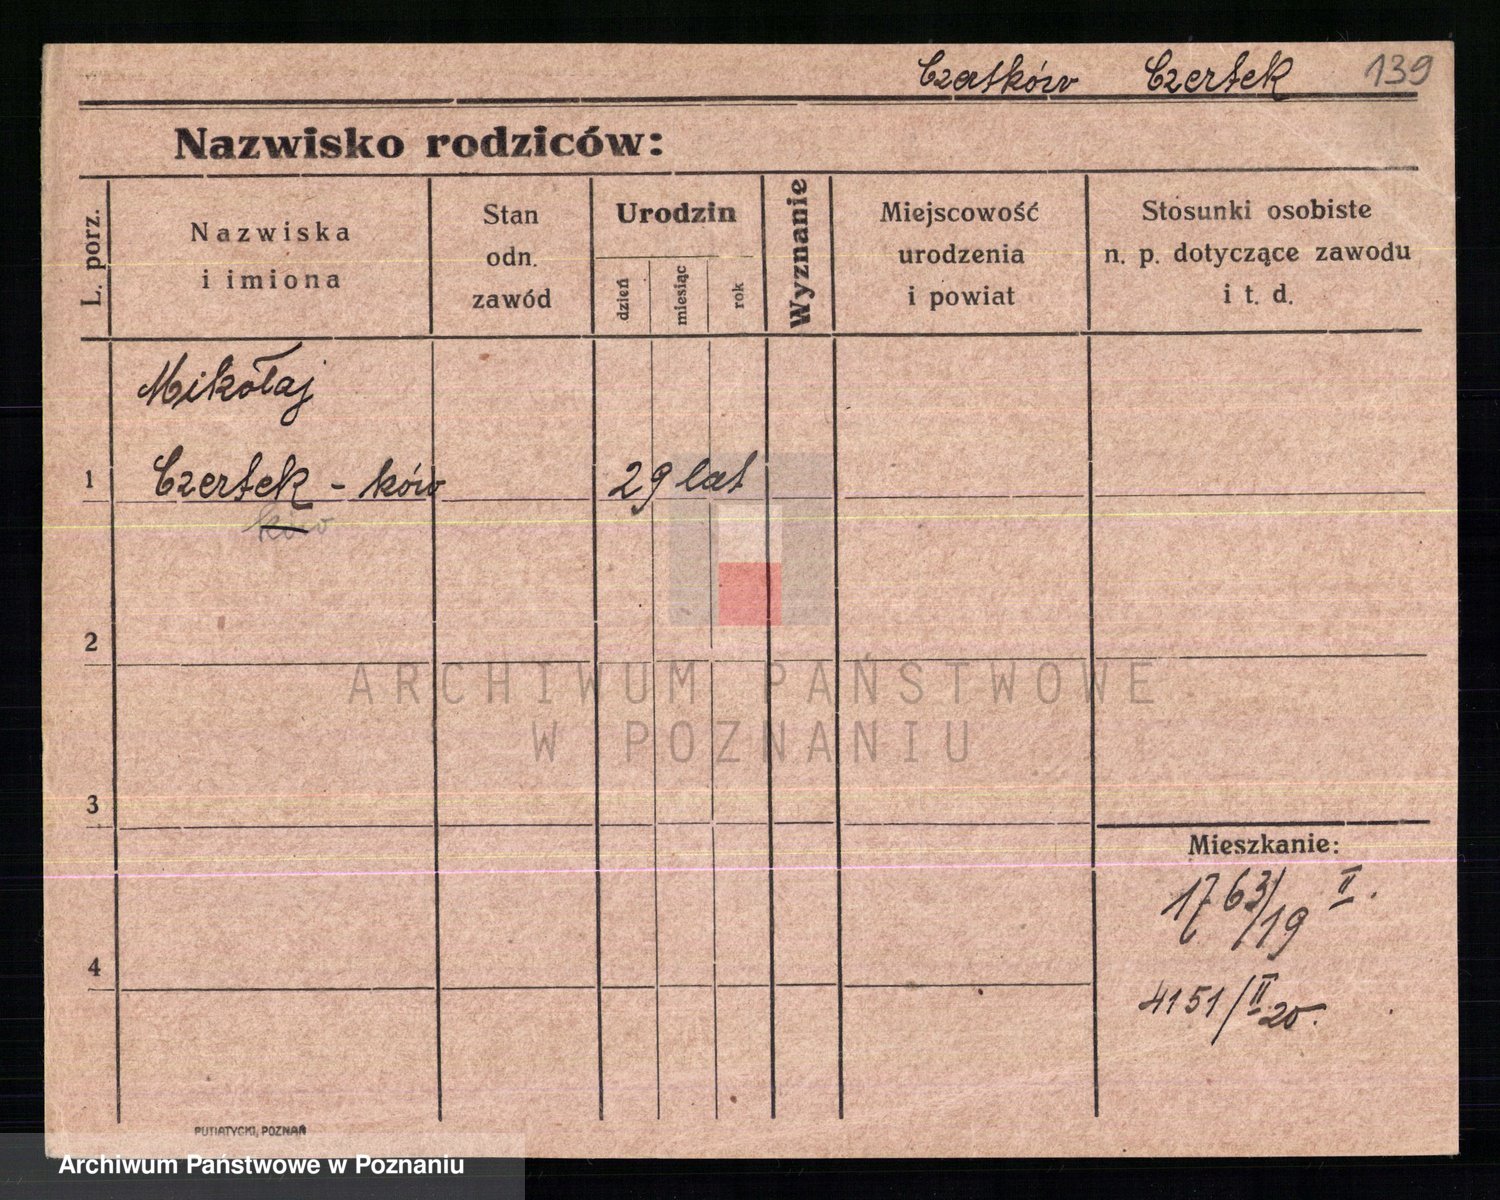 Czertków Czertek 139
Nazwisko rodziców:
L. porz.
Nazwiska
i imiona
Stan
odn.
zawód
Urodzin
dzień
miesiąc
rok
Wyznanie
Miejscowość
urodzenia
i powiat
Stosunki osobiste
n. p. dotyczące zawodu
i t. d.
Mikołaj
1 Czertek - ków 29 lat
ków
2
ARCHIWUM PAŃSTWOWE
W POZNANIU
3
Mieszkanie:
1763/19 II.
4
4151/II 20.
PUTIATYCKI, POZNAŃ
Archiwum Państwowe w Poznaniu